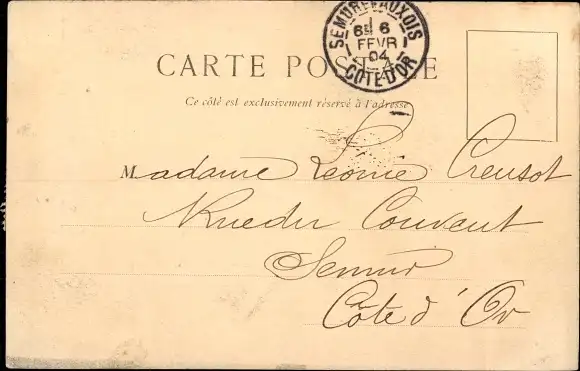 SEMUR-EN-AUXOIS
6E 6
FEVR
04
COTE-D'OR
CARTE POSTALE
Ce côté est exclusivement réservé à l'adresse
Madame Léonie Creusot
Rue du Couvent
Semur
Côte d'Or